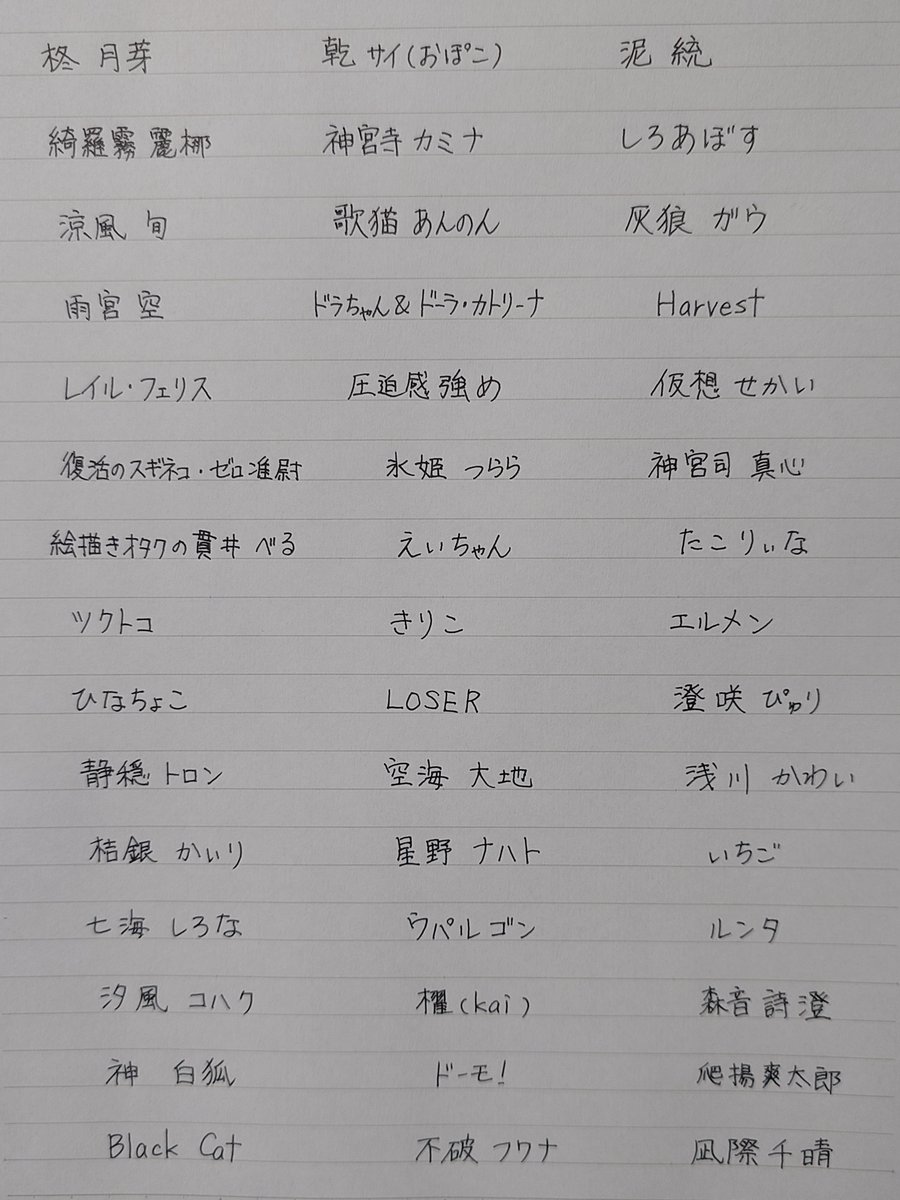 柊 月芽 乾 サイ(おぽこ) 泥 統
綺羅霧 麗梛 神宮寺 カミナ しろあぼす
涼風 旬 歌猫 あんのん 灰狼 ガウ
雨宮 空 ドラちゃん&ドーラ・カトリーナ Harvest
レイル・フェリス 圧迫感強め 仮想 せかい
復活のスギネコ・ゼロ准尉 氷姫 つらら 神宮司 真心
絵描きオタクの貫井 べる えいちゃん たこりぃな
ツクトコ きりこ エルメン
ひなちょこ LOSER 澄咲 ぴゅり
静穏 トロン 空海 大地 浅川 かわい
桔銀 かいり 星野 ナハト いちご
七海 しろな ウパルゴン ルンタ
汐風 コハク 櫂(kai) 森音詩澄
神 白狐 ドーモ! 爬揚爽太郎
Black Cat 不破 フワナ 凪際千晴